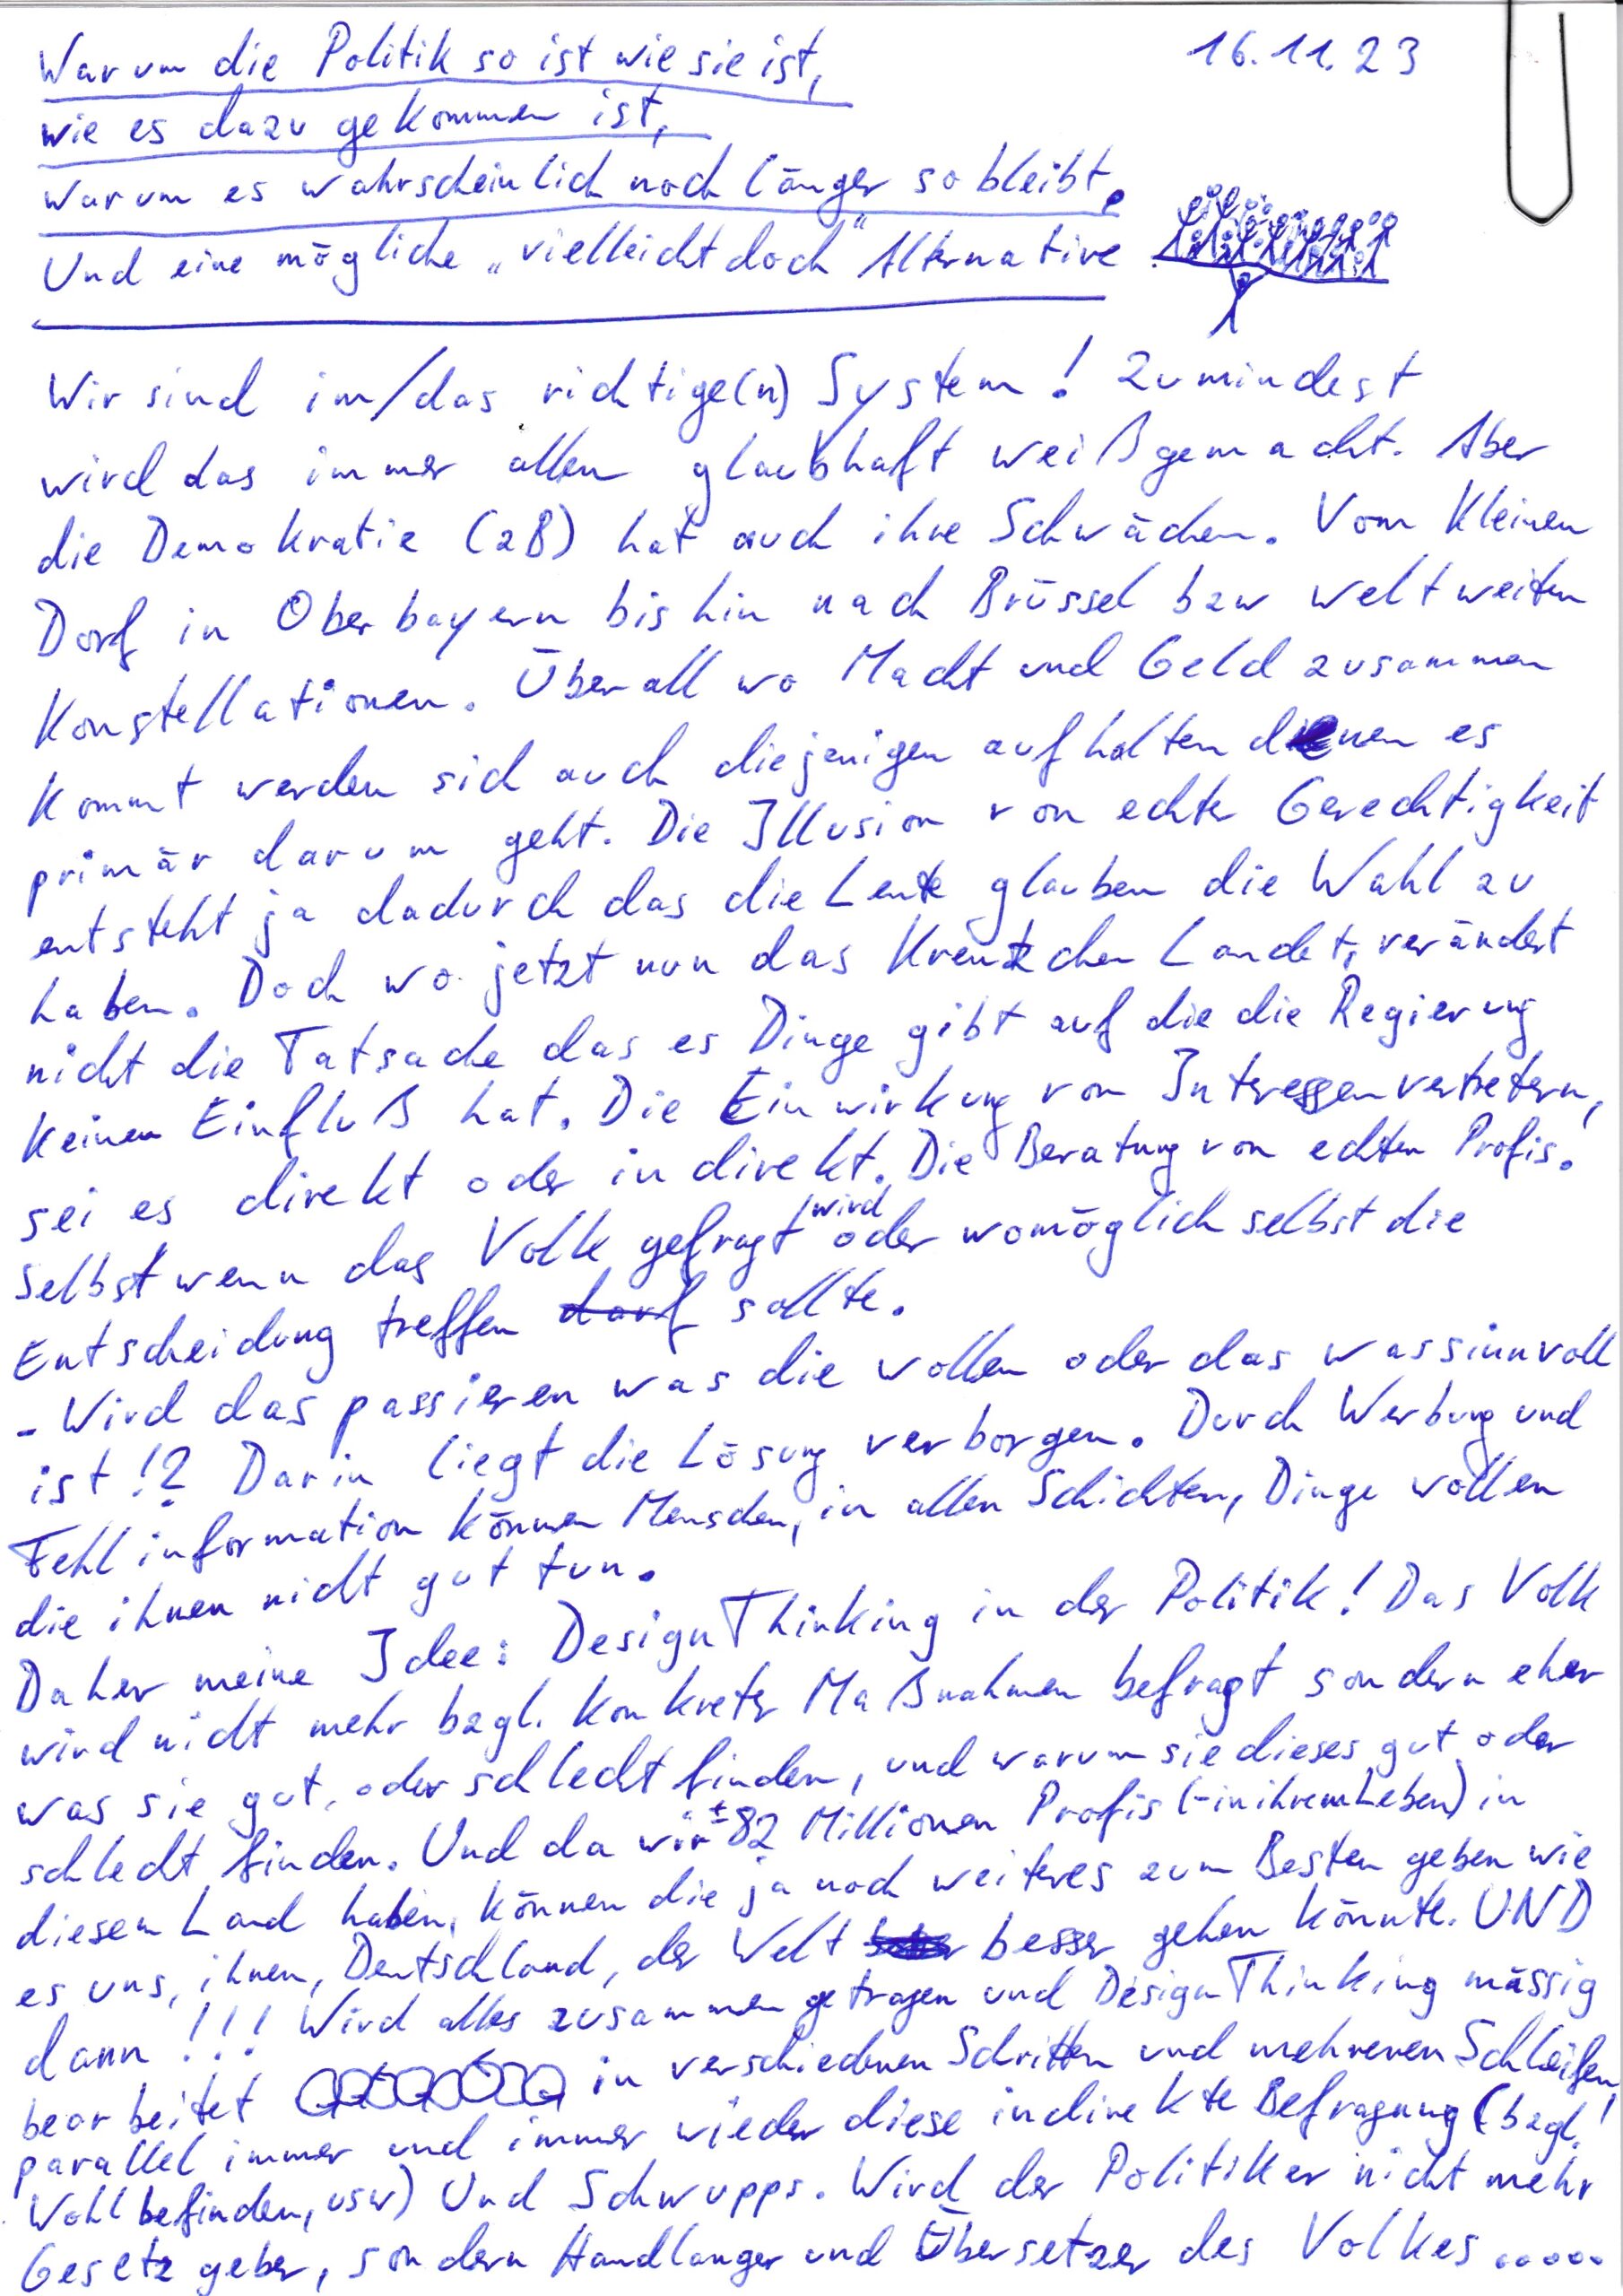 16.11.23
Warum die Politik so ist wie sie ist,
wie es dazu gekommen ist,
warum es wahrscheinlich noch länger so bleibt.
Und eine mögliche „vielleicht doch" Alternative
Wir sind im/das richtige(n) System! Zumindest
wird das immer allen glaubhaft weißgemacht. Aber
die Demokratie (zB) hat auch ihre Schwächen. Vom kleinen
Dorf in Oberbayern bis hin nach Brüssel bzw weltweiten
Konstellationen. Überall wo Macht und Geld zusammen
kommt werden sich auch diejenigen aufhalten denen es
primär darum geht. Die Illusion von echter Gerechtigkeit
entsteht ja dadurch das die Leute glauben die Wahl zu
haben. Doch wo jetzt nun das Kreutzchen Landet, verändert
nicht die Tatsache das es Dinge gibt auf die die Regierung
keinen Einfluß hat. Die Einwirkung von Interessenvertretern,
sei es direkt oder indirekt. Die Beratung von echten Profis!
Selbst wenn das Volk gefragt wird oder womöglich selbst die
Entscheidung treffen darf sollte.
- Wird das passieren was die wollen oder das was sinnvoll
ist!? Darin liegt die Lösung verborgen. Durch Werbung und
Fehlinformation können Menschen, in allen Schichten, Dinge wollen
die ihnen nicht gut tun.
Daher meine Idee: Design Thinking in der Politik! Das Volk
wird nicht mehr bzgl. konkreter Maßnahmen befragt sondern eher
was sie gut, oder schlecht finden, und warum sie dieses gut oder
schlecht finden. Und da wir ±82 Millionen Profis (-in ihrem Leben) in
diesem Land haben, können die ja noch weiteres zum Besten geben wie
es uns, ihnen, Deutschland, der Welt besser gehen könnte. UND
dann !!! Wird alles zusammen getragen und Design Thinking mässig
bearbeitet in verschiedenen Schritten und mehreren Schleifen,
parallel immer und immer wieder diese indirekte Befragung (bzgl.
Wohlbefinden, usw) Und Schwupps. Wird der Politiker nicht mehr
Gesetzgeber, sondern Handlanger und Übersetzer des Volkes .....